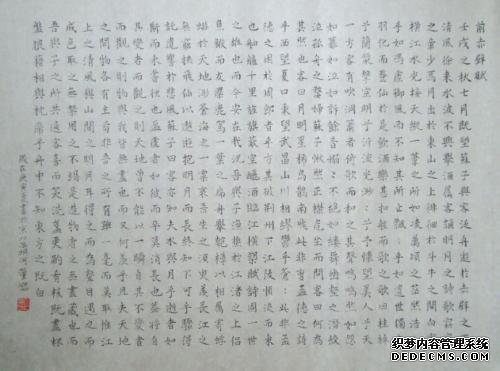 前赤壁賦
壬戌之秋七月既望蘇子與客泛舟遊於赤壁之下
清風徐來水波不興舉酒屬客誦明月之詩歌窈窕
之章少焉月出於東山之上徘徊於斗牛之間白露
橫江水光接天縱一葦之所如凌萬頃之茫然浩浩
乎如馮虛御風而不知其所止飄飄乎如遺世獨立
羽化而登仙於是飲酒樂甚扣舷而歌之歌曰桂棹
兮蘭槳擊空明兮泝流光渺渺兮予懷望美人兮天
一方客有吹洞簫者倚歌而和之其聲嗚嗚然如怨
如慕如泣如訴餘音嫋嫋不絕如縷舞幽壑之潛蛟
泣孤舟之嫠婦蘇子愀然正襟危坐而問客曰何為
其然也客曰月明星稀烏鵲南飛此非曹孟德之詩
乎西望夏口東望武昌山川相繆鬱乎蒼蒼此非孟
德之困於周郎者乎方其破荊州下江陵順流而東
也舳艫千里旌旗蔽空釃酒臨江橫槊賦詩固一世
之雄也而今安在哉況吾與子漁樵於江渚之上侶
魚蝦而友麋鹿駕一葉之扁舟舉匏樽以相屬寄蜉
蝣於天地渺滄海之一粟哀吾生之須臾羨長江之
無窮挾飛仙以遨遊抱明月而長終知不可乎驟得
託遺響於悲風蘇子曰客亦知夫水與月乎逝者如
斯而未嘗往也盈虛者如彼而卒莫消長也蓋將自
其變者而觀之則天地曾不能以一瞬自其不變者
而觀之則物與我皆無盡也而又何羨乎且夫天地
之間物各有主苟非吾之所有雖一毫而莫取惟江
上之清風與山間之明月耳得之而為聲目遇之而
成色取之無禁用之不竭是造物者之無盡藏也而
吾與子之所共適客喜而笑洗盞更酌肴核既盡杯
盤狼籍相與枕藉乎舟中不知東方之既白
歲在庚寅
织梦内容管理系统
DEDECMS.COM